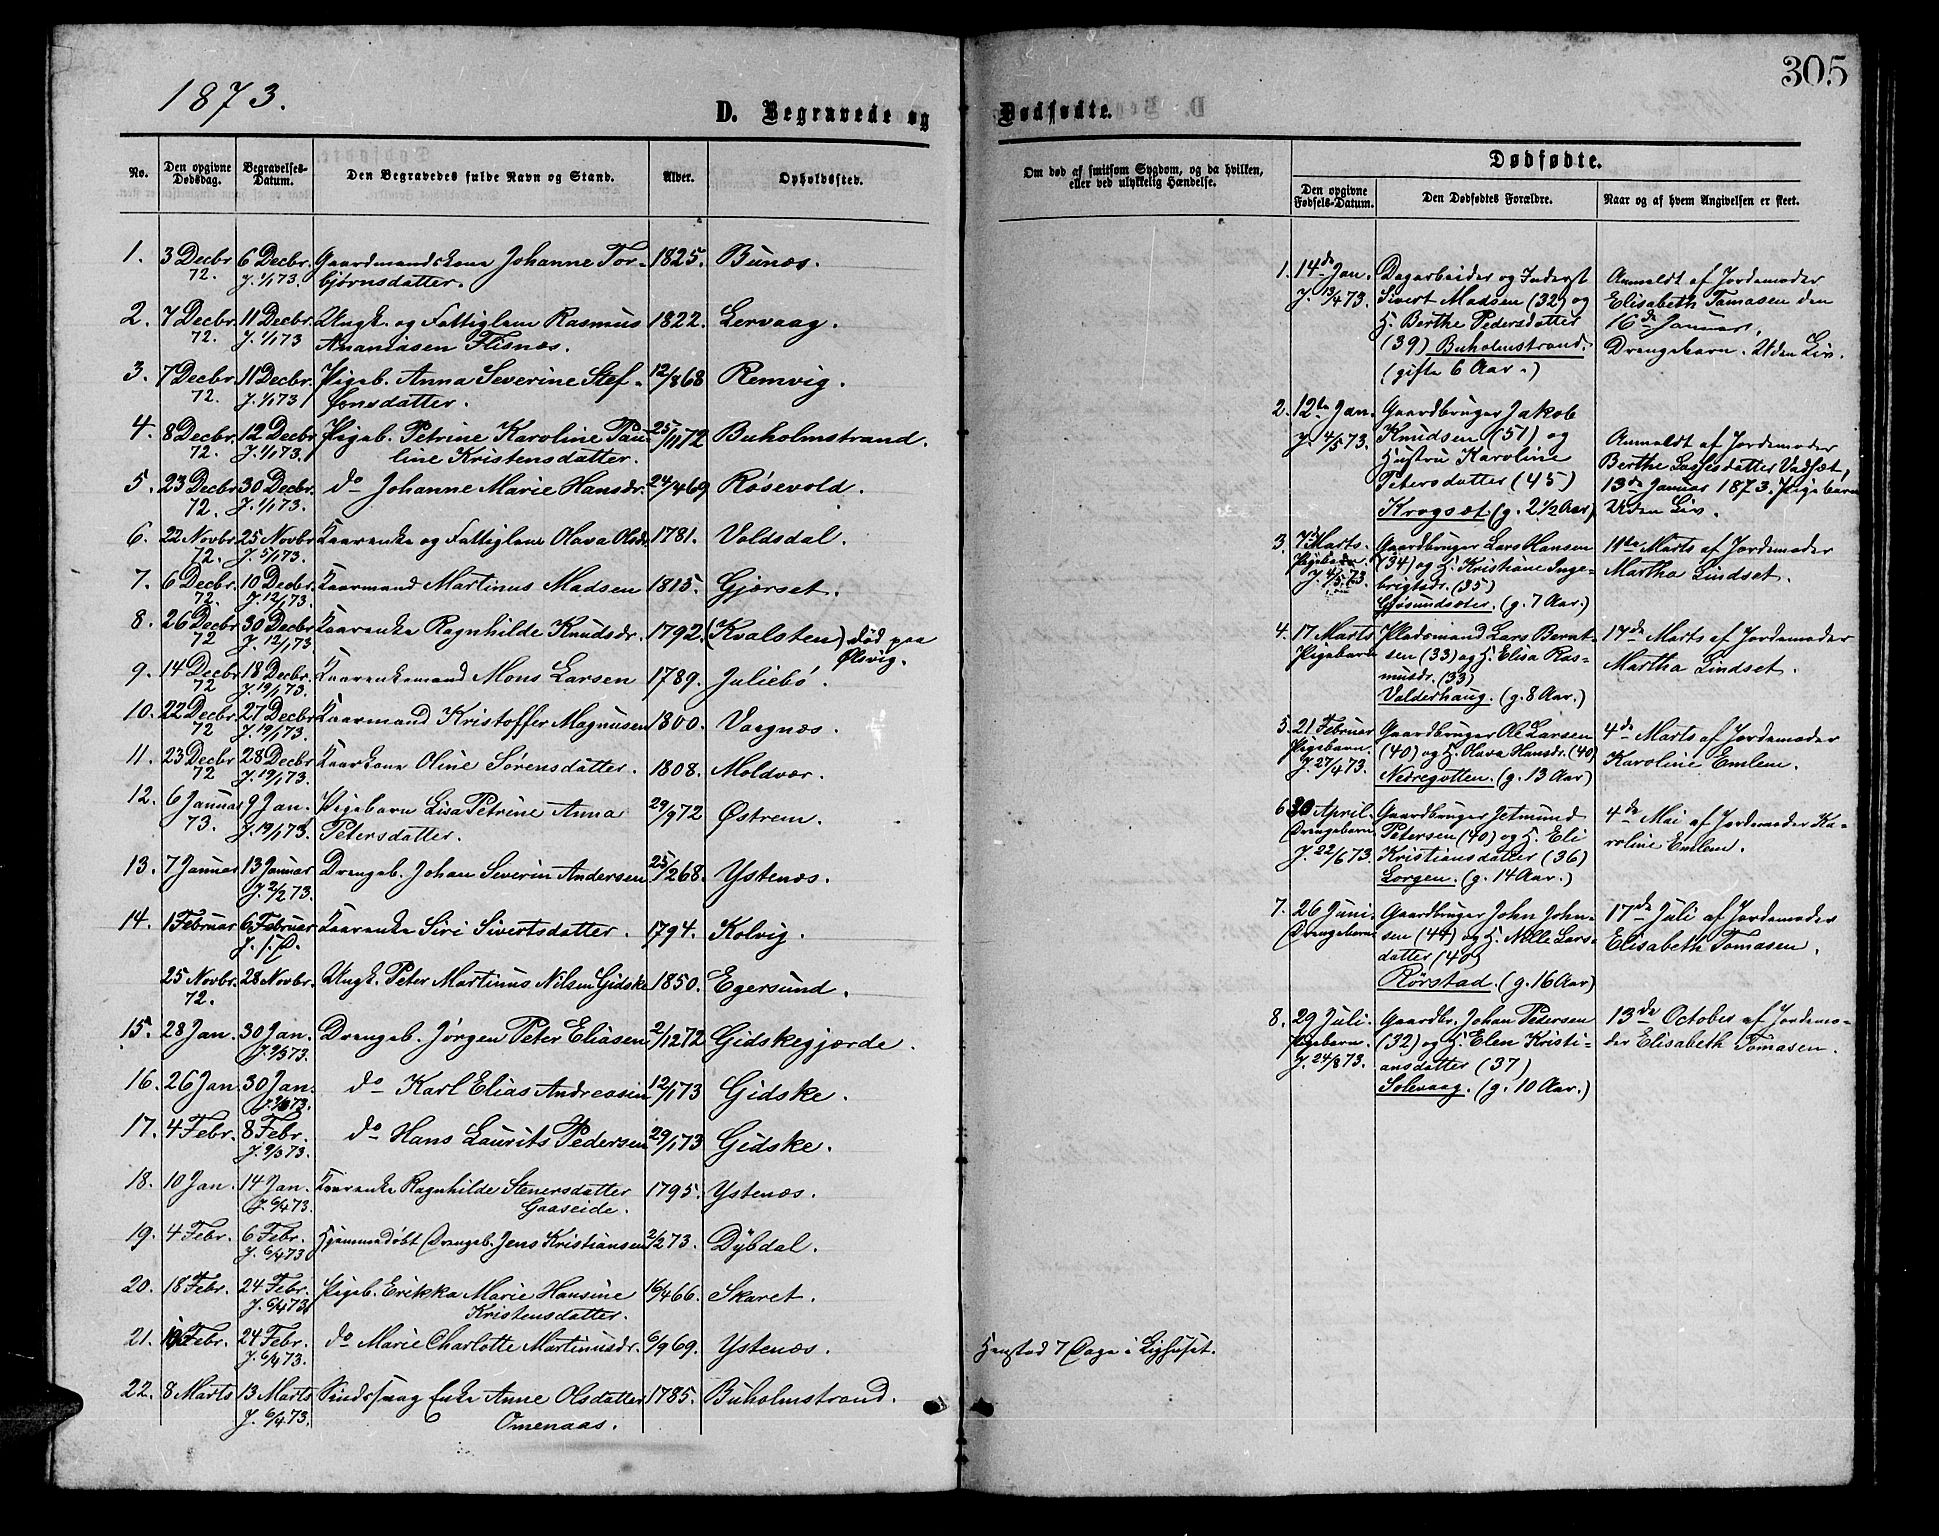 1873.
305
D. Begravede og
Dødfødte.
No.
Den opgivne Dødsdag.
Begravelses-Datum.
Den Begravedes fulde Navn og Stand.
Alder.
Opholdssted.
1. 3 Decbr. 6 Decbr. Gaardmandskone Johanne Tor- 1825. Bunæs.
72. J. 1/1 73. bjørnsdatter.
2. 7 Decbr. 11 Decbr. Ungk. og Fattiglem Rasmus 1822. Lervaag.
72. J. 1/1 73 Ananiasen Flisnæs.
3. 7 Decbr. 11 Decbr. Pigeb. Anna Severine Stef- 12/8 68 Remvig.
72. J. 1/1 73 fensdatter.
4. 8 Decbr. 12 Decbr. Pigeb. Petrine Karoline Pau- 25/11 72 Buholmstrand.
72. J. 1/1 73. line Kristensdatter.
5. 23 Decbr. 30 Decbr. do Johanne Marie Hansdr. 24/4 69 Røsevold.
72. J. 1/1 73.
6. 22 Novbr. 25 Novbr. Kaarenke og Fattiglem Olava Olsdr. 1781. Valdsdal.
72. J. 5/1 73.
7. 6 Decbr. 10 Decbr. Kaarmand Martinus Madsen 1815. Gjørset.
72. J. 12/1 73.
8. 26 Decbr. 30 Decbr. Kaarenke Ragnhilde Knudsdr. 1792. (Kvalsten) død paa
72 J. 12/1 73. Ølsvig.
9. 14 Decbr. 18 Decbr. Kaarenkemand Mons Larsen 1789. Juliebø.
72 J. 19/1 73.
10. 22 Decbr. 27 Decbr. Kaarmand Kristoffer Magnusen 1800. Vegnæs.
72 J. 19/1 73.
11. 23 Decbr. 28 Decbr. Kaarkone Oline Sørensdatter. 1808. Moldvær.
72 J. 19/1 73.
12. 6 Januar 9 Jan. Pigebarn Lisa Petrine Anna 29/9 72 Østrem.
73. J. 19/1 73. Petersdatter.
13. 7 Januar 13 Januar Drengeb. Johan Severin Andersen 25/2 68. Ystenæs.
J. 2/2 73.
14. 1 Februar 6 Februar Kaarenke Siri Sivertsdatter. 1794. Kolvig.
25 Novbr. 28 Novbr. Ungk. Peter Martinus Nilsen Gidske 1850. Egersund.
72.
15. 28 Jan. 30 Jan. Drengeb. Jørgen Peter Eliasen 2/12 72 Gidskegjærde.
J. 9/3 73.
16. 26 Jan. 30 Jan. do Karl Elias Andreasen 12/1 73 Gidske.
J. 9/3 73.
17. 4 Febr. 8 Febr. do Hans Laurits Pedersen 29/1 73 Gidske.
J. 9/3 73.
18. 10 Jan. 14 Jan. Kaarenke Ragnhilde Stenersdatter 1795. Ystenæs.
J. 6/4 73. Gaaseide.
19. 4 Febr. 6 Febr. Hjemmedøbt Drengeb. Jens Kristiansen 2/2 73. Dybdal.
J. 6/4 73.
20. 18 Febr. 24 Febr. Pigeb. Erikka Marie Hansine 16/4 66. Skaret.
J. 6/4 73. Kristensdatter.
21. Febr. 24 Febr. do Marie Charlotte Martinusdr. 6/9 69. Ystenæs.
J. 6/4 73.
22. 8 Marts 13 Marts Sindssvag Enke Anne Olsdatter 1785. Buholmstrand.
J. 6/4 73. Omenaas.
Om død af smitsom Sygdom, og da hvilken,
eller ved ulykkelig Hændelse.
Henstod 7 Dage i Lighuset.
Dødfødte.
Den opgivne Fødsels-Datum.
Den Dødfødtes Forældre.
Naar og af hvem Angivelsen er skeet.
1. 14de Jan. Dagarbeider og Inderst Anmeldt af Jordemoder
J. 13/4 73. Sivert Madsen (32) og Elisabeth Tomasen den
H. Berthe Pedersdatter 16de Januar.
(39) Buholmstrand. Drengebarn. Uden Liv.
(gifte 6 Aar.)
2. 12te Jan. Gaardbruger Jakob
J. 4/5 73. Knudsen (51) og Anmeldt af Jordemoder
Hustru Karoline Berthe Lassesdatter Vadsæt,
Petersdatter (45) 13de Januar 1873. Pigebarn
Krogsæt. (g. 21/2 Aar) Uden Liv.
3. 7 Marts. Gaardbruger Lars Hansen 11te Marts af Jordemoder
Pigebarn. (34) og H. Kristiane Inge- Martha Lindset.
J. 4/5 73. brigtsdr. (35)
Gjøsundsæter. (g. 7 Aar.)
4. 17 Marts Pladsmand Lars Bernt- 17de Marts af Jordemoder
Pigebarn sen (33) og H. Elisa Ras- Martha Lindset.
musdr. (33)
Valderhaug. (g. 8 Aar.)
5. 21 Februar Gaardbruger Ole Larsen 4de Marts af Jordemoder
Pigebarn. (40) og H. Olava Hansdr. (40) Karoline Emlem.
J. 27/4 73. Nedregotten. (g. 13 Aar)
6. 30 April. Gaardbruger Jetmund 4de Mai af Jordemoder Ka-
Drengebarn Petersen (40) og H. Eli roline Emlem.
J. 22/6 73. Kristiansdatter (36)
Lorgen. (g. 14 Aar.)
7. 26 Juni. Gaardbruger John John- 17de Juli af Jordemoder
Drengebarn sen (44) og H. Nille Lars- Elisabeth Tomasen.
datter (40)
Rørstad. (g. 16 Aar)
8. 29 Juli. Gaardbr. Johan Pedersen 13de October af Jordemo-
Pigebarn. (32) og H. Elen Kristi- der Elisabeth Tomasen.
J. 24/8 73. ansdatter (37)
Solevaag. (g. 10 Aar.)